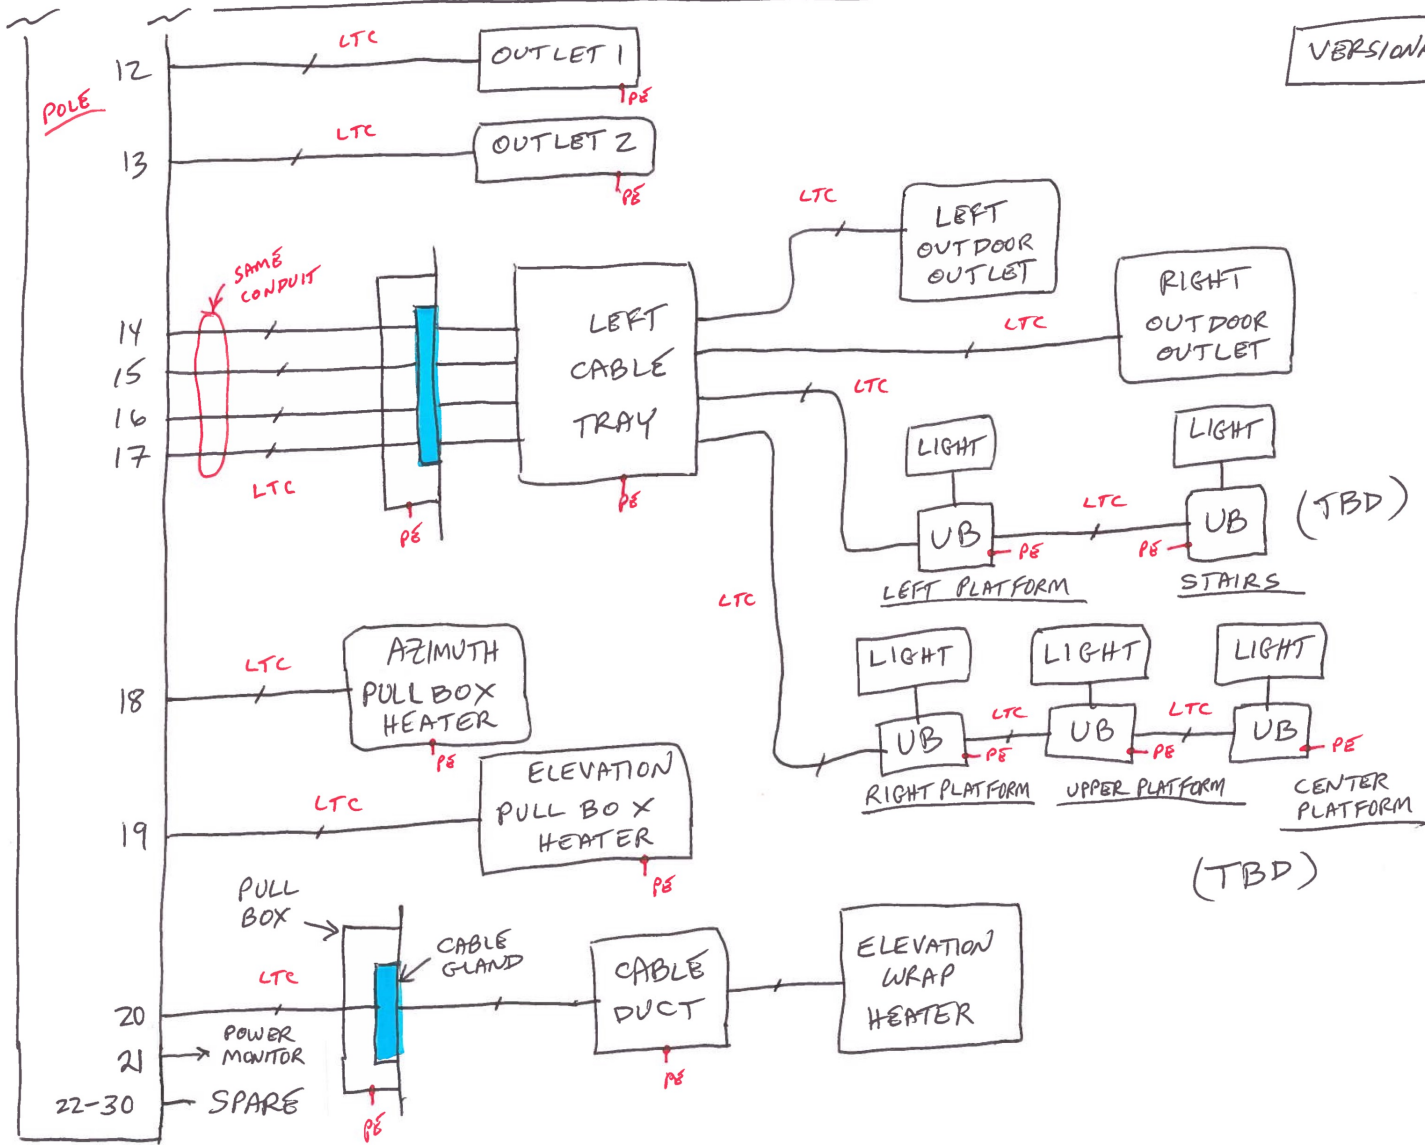 VERSION
POLE
12
LTC
OUTLET 1
PE
13
LTC
OUTLET 2
PE
SAME
CONDUIT
14
15
16
17
LTC
PE
LEFT
CABLE
TRAY
PE
LTC
LEFT
OUTDOOR
OUTLET
LTC
RIGHT
OUTDOOR
OUTLET
LTC
LIGHT
UB
PE
LEFT PLATFORM
LTC
LIGHT
UB
PE
STAIRS
(TBD)
LTC
LIGHT
UB
PE
RIGHT PLATFORM
LTC
LIGHT
UB
PE
UPPER PLATFORM
LTC
LIGHT
UB
PE
CENTER
PLATFORM
(TBD)
18
LTC
AZIMUTH
PULL BOX
HEATER
PE
19
LTC
ELEVATION
PULL BOX
HEATER
PE
PULL
BOX
CABLE
GLAND
20
LTC
PE
CABLE
DUCT
PE
ELEVATION
WRAP
HEATER
21
POWER
MONITOR
22-30
SPARE